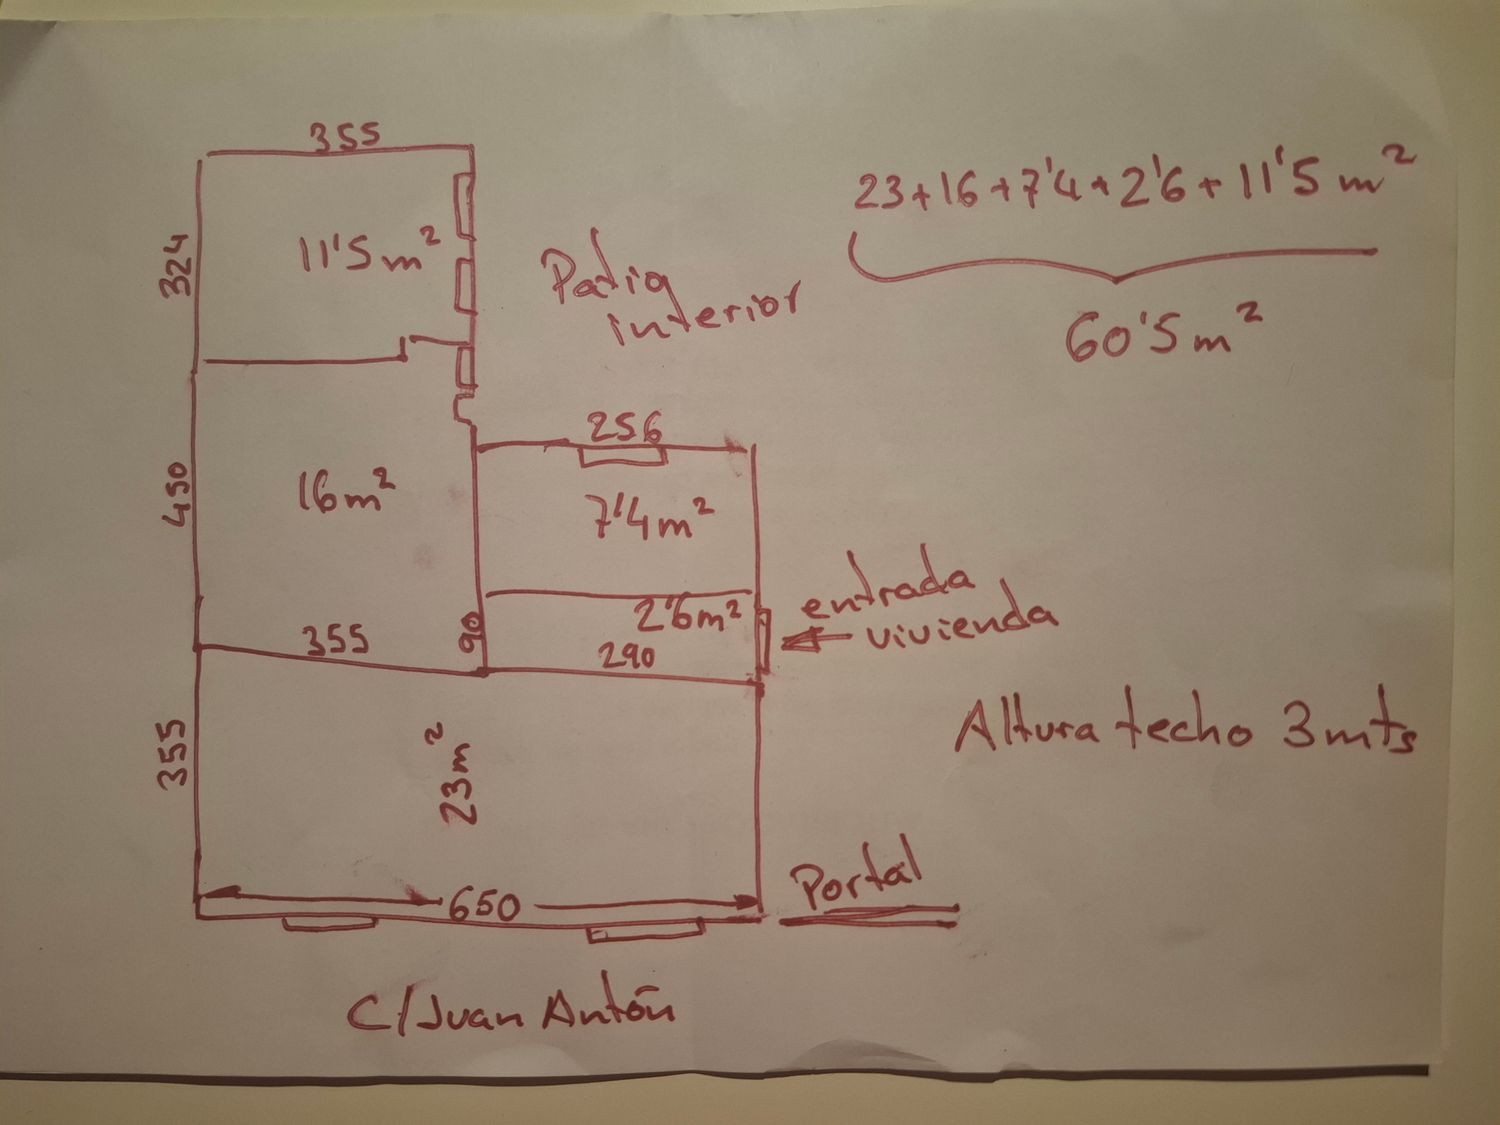 355
23+16+7'4+2'6+11'5 m²
60'5 m²
324
11'5 m²
Patio
interior
256
450
16 m²
7'4 m²
entrada
vivienda
2'6 m²
90
355
290
Altura techo 3 mts
355
23 m²
650
Portal
C/Juan Antón